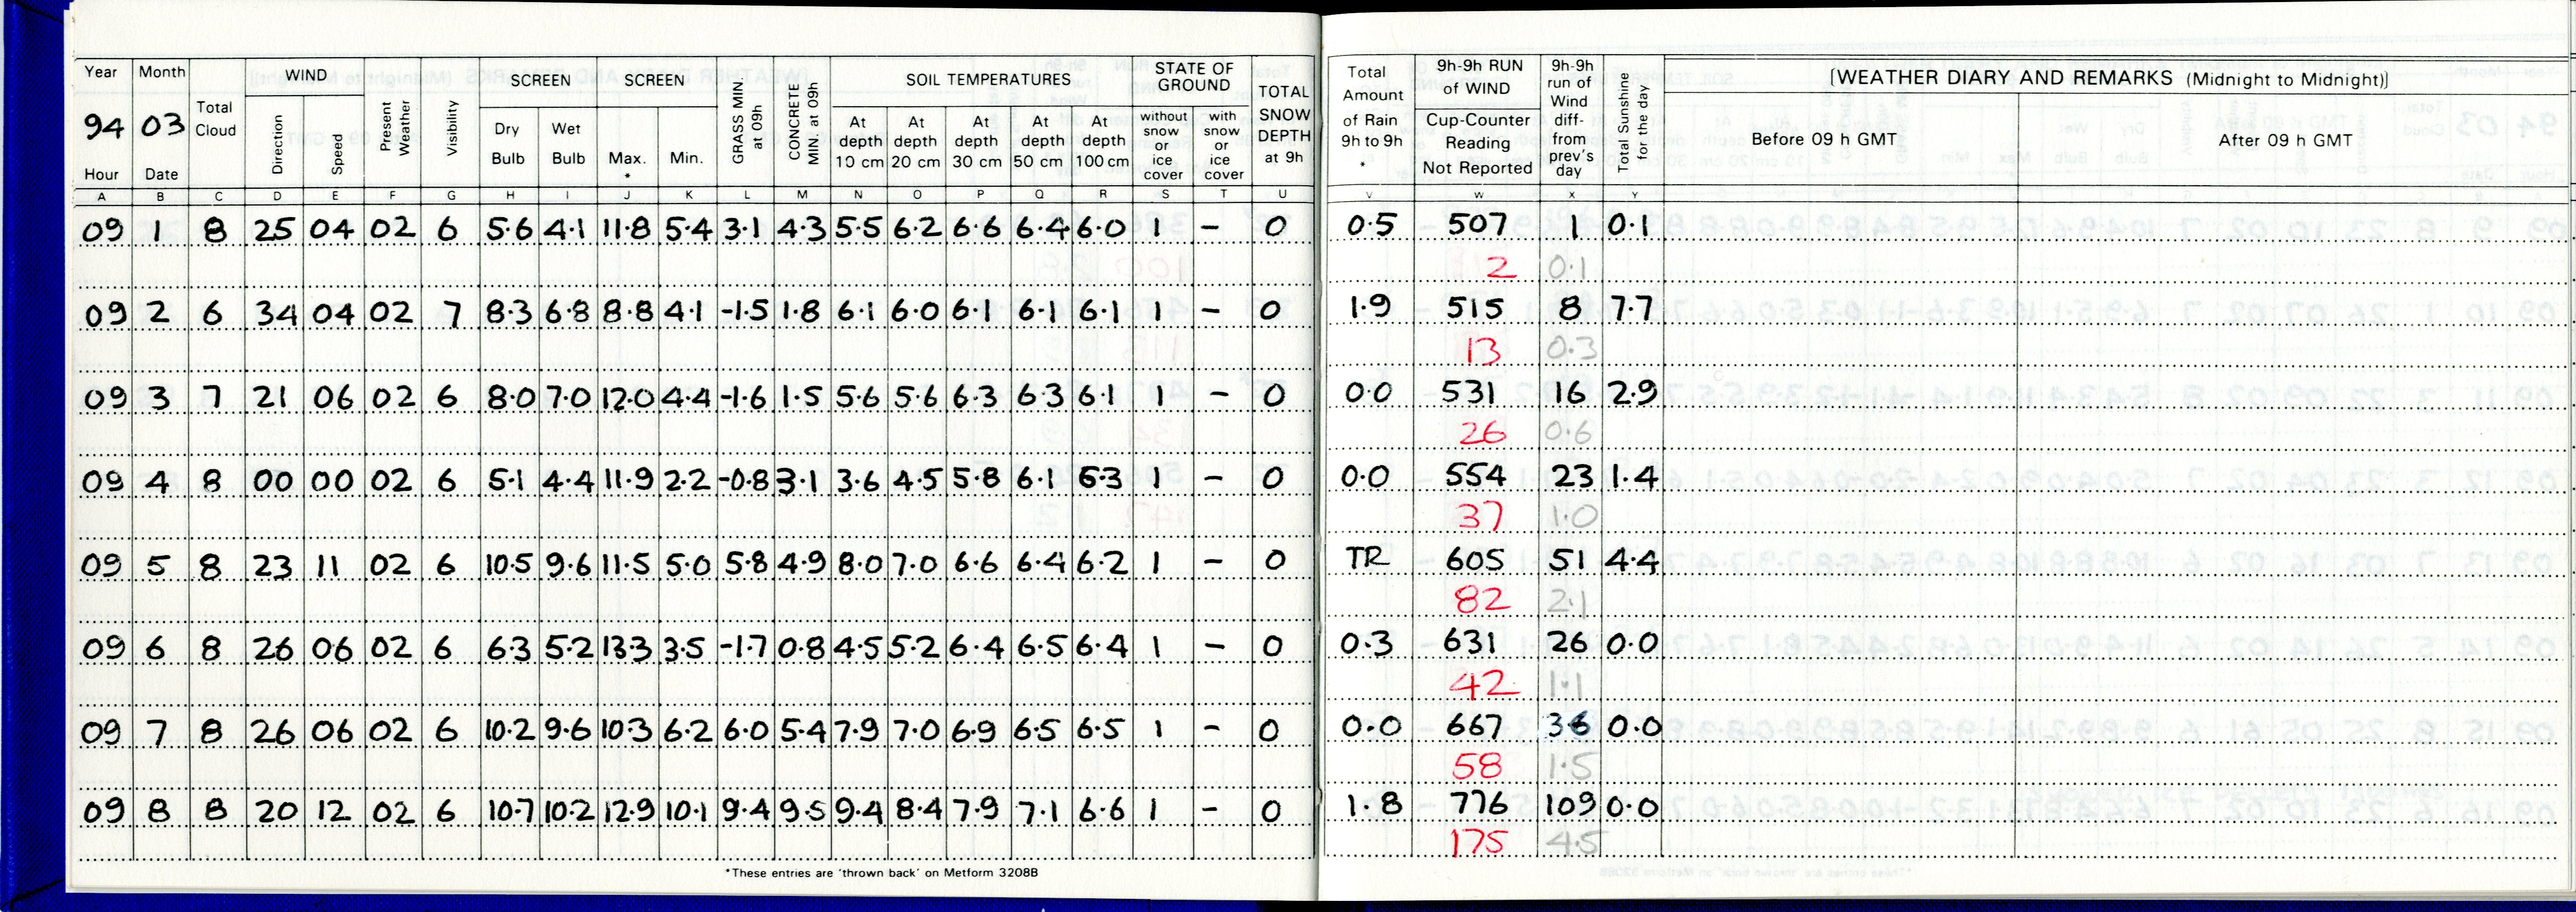 Year Month Total Cloud WIND Present Weather Visibility SCREEN SCREEN GRASS MIN at 09h CONCRETE MIN at 09h SOIL TEMPERATURES STATE OF GROUND TOTAL SNOW DEPTH at 9h Total Amount of Rain 9h to 9h * 9h-9h RUN of WIND 9h-9h run of Wind diff- from prev's day Total Sunshine for the day [WEATHER DIARY AND REMARKS (Midnight to Midnight)]
94 03 Direction Speed Dry Bulb Wet Bulb Max. * Min. At depth 10 cm At depth 20 cm At depth 30 cm At depth 50 cm At depth 100 cm without snow or ice cover with snow or ice cover Cup-Counter Reading Not Reported Before 09 h GMT After 09 h GMT
Hour Date
A B C D E F G H I J K L M N O P Q R S T U V W X Y
09 1 8 25 04 02 6 5.6 4.1 11.8 5.4 3.1 4.3 5.5 6.2 6.6 6.4 6.0 1 - 0 0.5 507 1 0.1
2 0.1
09 2 6 34 04 02 7 8.3 6.8 8.8 4.1 -1.5 1.8 6.1 6.0 6.1 6.1 6.1 1 - 0 1.9 515 8 7.7
13 0.3
09 3 7 21 06 02 6 8.0 7.0 12.0 4.4 -1.6 1.5 5.6 5.6 6.3 6.3 6.1 1 - 0 0.0 531 16 2.9
26 0.6
09 4 8 00 00 02 6 5.1 4.4 11.9 2.2 -0.8 3.1 3.6 4.5 5.8 6.1 6.3 1 - 0 0.0 554 23 1.4
37 1.0
09 5 8 23 11 02 6 10.5 9.6 11.5 5.0 5.8 4.9 8.0 7.0 6.6 6.4 6.2 1 - 0 TR 605 51 4.4
82 2.1
09 6 8 26 06 02 6 6.3 5.2 13.3 3.5 -1.7 0.8 4.5 5.2 6.4 6.5 6.4 1 - 0 0.3 631 26 0.0
42 1.1
09 7 8 26 06 02 6 10.2 9.6 10.3 6.2 6.0 5.4 7.9 7.0 6.9 6.5 6.5 1 - 0 0.0 667 36 0.0
58 1.5
09 8 8 20 12 02 6 10.7 10.2 12.9 10.1 9.4 9.5 9.4 8.4 7.9 7.1 6.6 1 - 0 1.8 776 109 0.0
175 4.5
*These entries are 'thrown back' on Metform 3208B